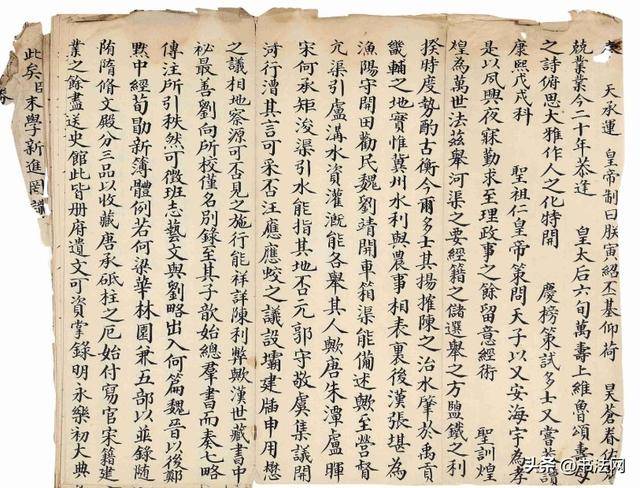 天承運 皇帝制曰朕寅紹丕基仰荷 昊蒼眷佑
兢業業今二十年恭逢 皇太后六旬萬壽上維魯頌壽母
之詩俯思大雅作人之化特開 慶榜策試多士又嘗恭讀
康熙戊戌科 聖祖仁皇帝策問天子以乂安海宇為孝
是以夙興夜寐勤求至理政事之餘留意經術 聖訓煌
煌為萬世法茲舉河渠之要經籍之儲選舉之方鹽鐵之利
揆時度勢酌古衡今爾多士其揚搉陳之治水肇於禹貢
畿輔之地實惟冀州水利與農事相表裏後漢張堪為
漁陽守開田勸民魏劉靖開車箱渠能備述歟至營督
亢渠引盧溝水資灌溉能各舉其人歟唐朱潭盧暉
宋何承矩浚渠引水能指其地否元郭守敬虞集議開
河行漕其言可采否汪應應蛟之議設壩建牐申用懋
之議相地察源可否見之施行能祥詳陳利弊歟漢世藏書中
祕最善劉向所校僅名別錄至其子歆始總羣書而奏七略
傳注所引秩然可徵班志藝文與劉略出入何篇魏晉以後鄭
默中經荀勗新簿體例若何梁華林園兼五部以並錄隨
隋脩文殿分三品以收藏唐承砥柱之厄始付寫官宋籍建
業之餘盡送史館此皆册府遺文可資掌錄明永樂初大典
此矣臣末學新進罔識
头条 @书法网